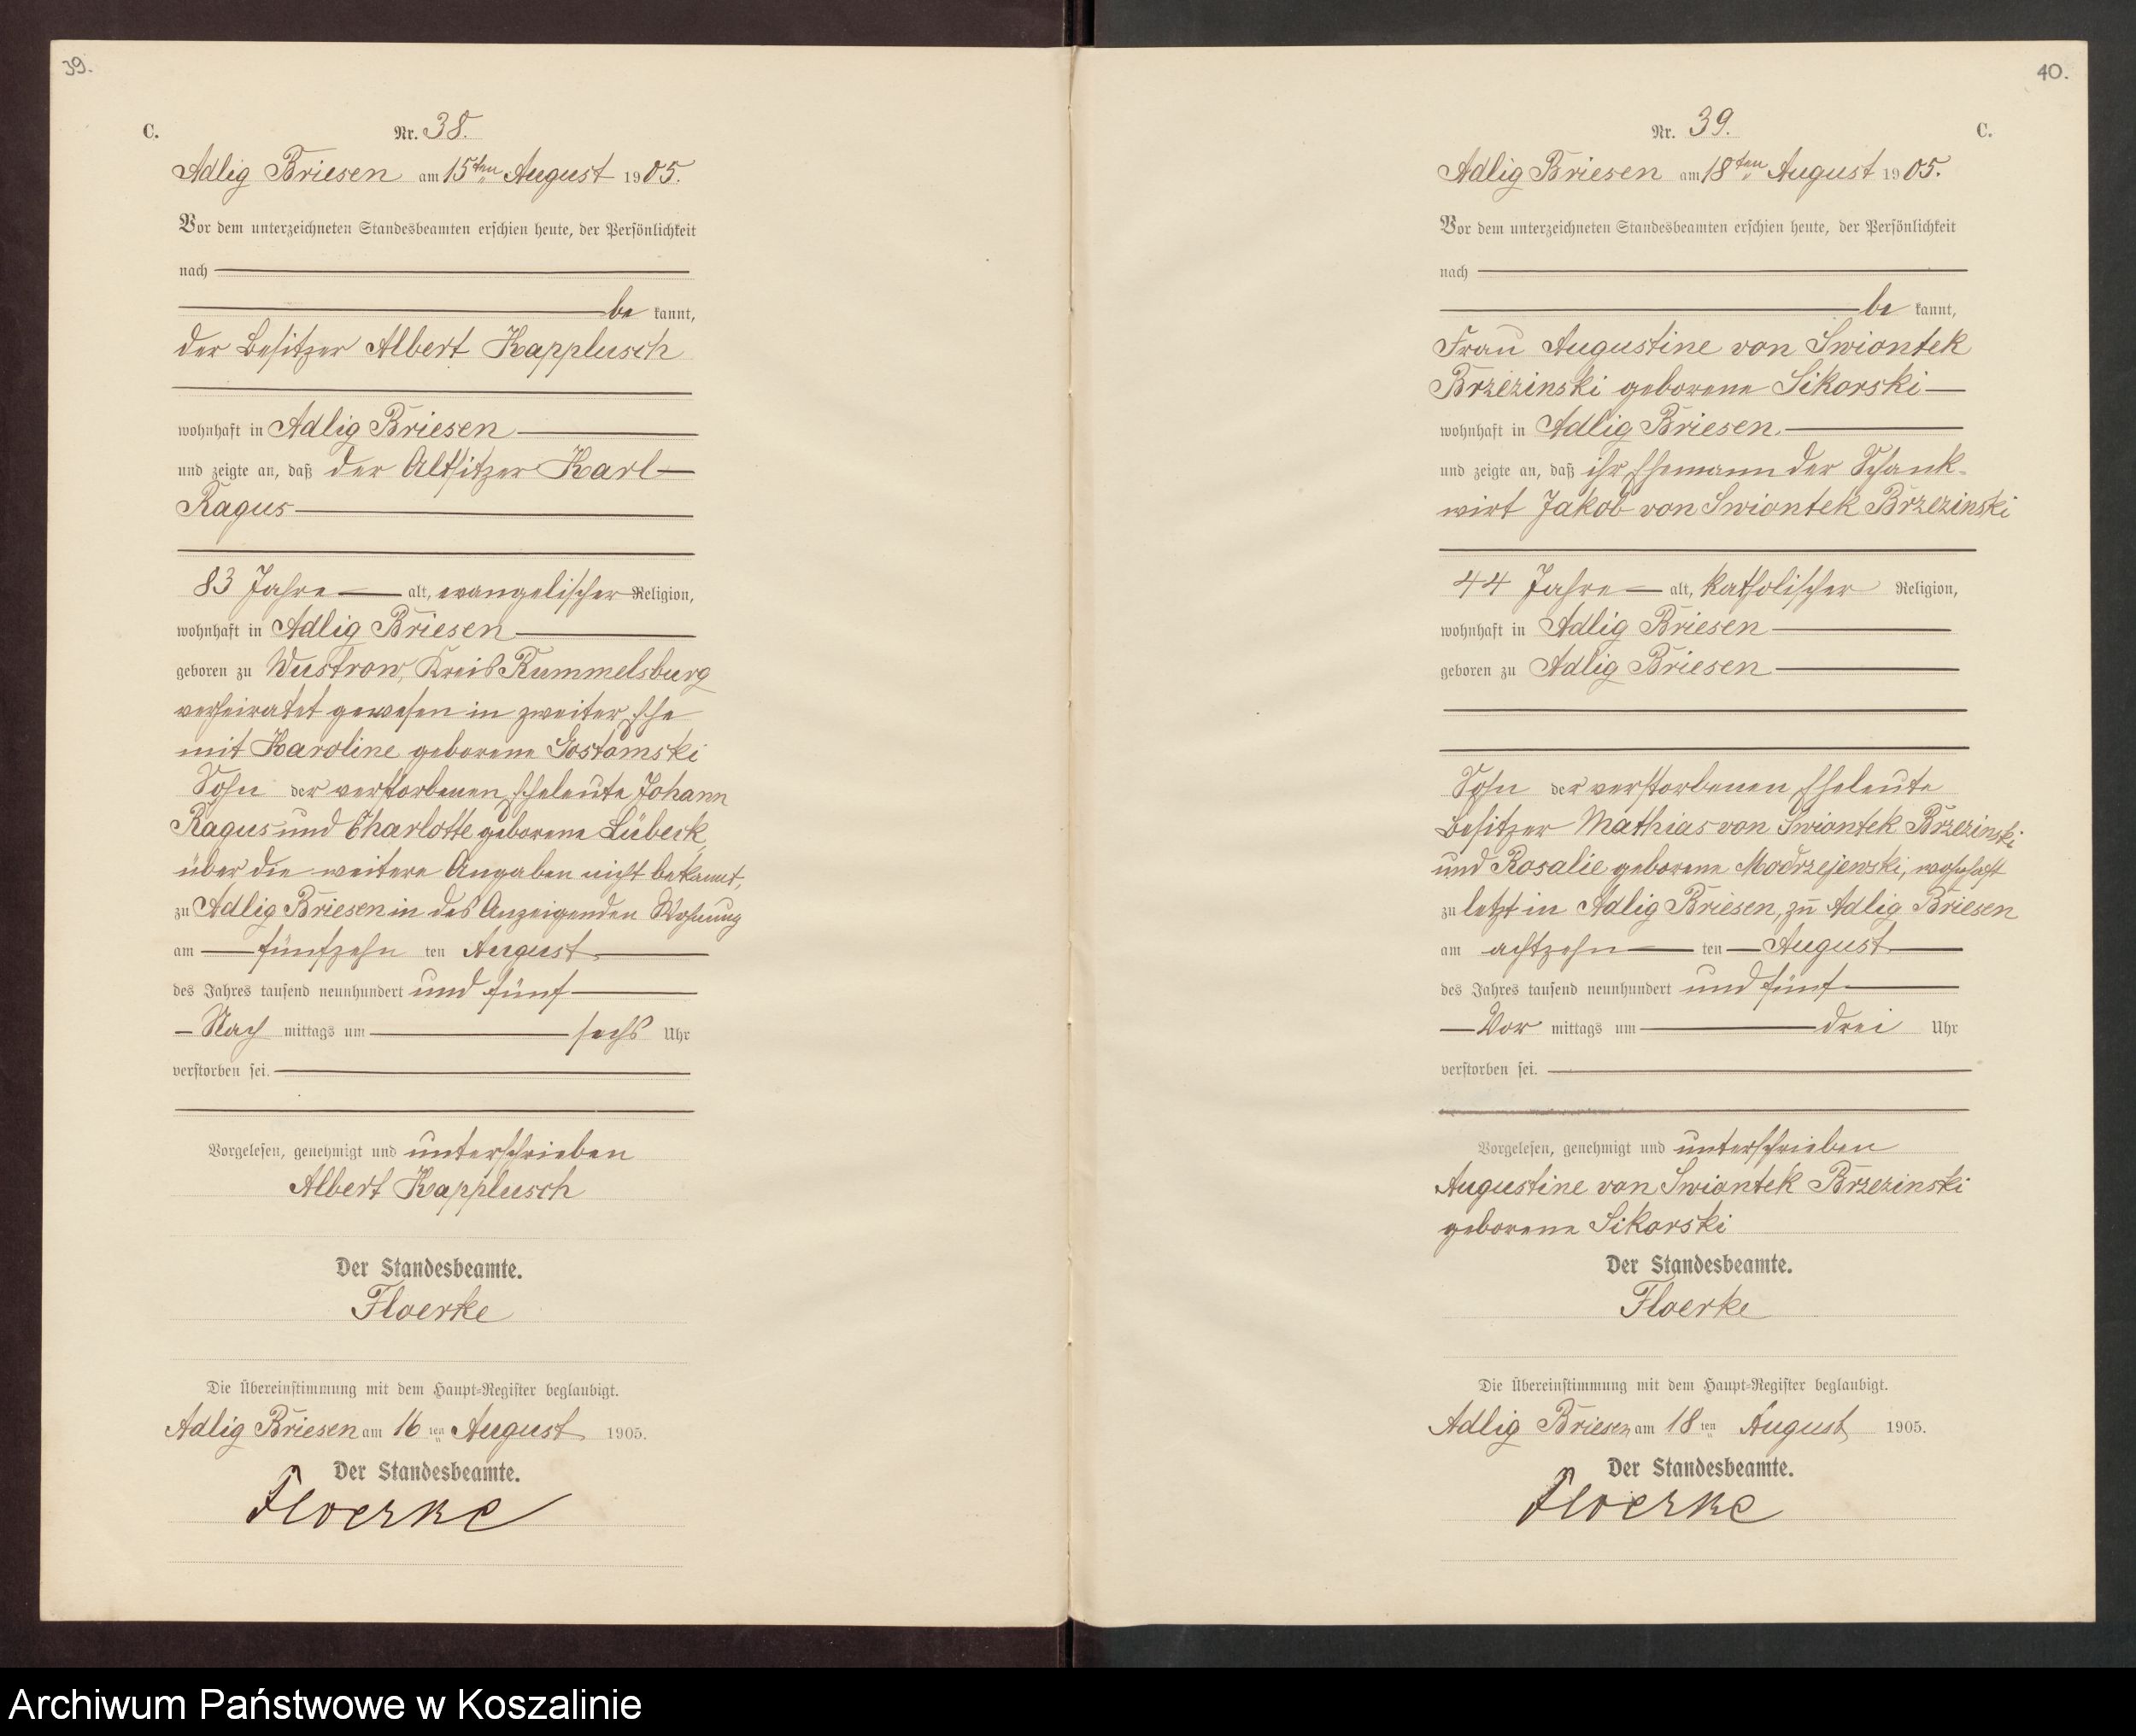 39.
C.
Nr. 38.
Adlig Briesen am 15ten August 1905.
Vor dem unterzeichneten Standesbeamten erschien heute, der Persönlichkeit
nach
be kannt,
der Besitzer Albert Kapplusch
wohnhaft in Adlig Briesen
und zeigte an, daß der Altsitzer Karl
Ragus
83 Jahre alt, evangelischer Religion,
wohnhaft in Adlig Briesen
geboren zu Wustrow, Kreis Rummelsburg
verheiratet gewesen in zweiter Ehe
mit Karoline geborene Gostomski
Sohn der verstorbenen Eheleute Johann
Ragus und Charlotte geborene Lübeck,
über die weitere Angaben nicht bekannt,
zu Adlig Briesen in des Anzeigenden Wohnung
am fünfzehn ten August
des Jahres tausend neunhundert und fünf
Nach mittags um sechs Uhr
verstorben sei.
Vorgelesen, genehmigt und unterschrieben
Albert Kapplusch
Der Standesbeamte.
Floerke
Die Übereinstimmung mit dem Haupt-Register beglaubigt.
Adlig Briesen am 16ten August 1905.
Der Standesbeamte.
Floerke
40.
Nr. 39.
C.
Adlig Briesen am 18ten August 1905.
Vor dem unterzeichneten Standesbeamten erschien heute, der Persönlichkeit
nach
be kannt,
Frau Augustine von Swiontek
Brzezinski geborene Sikorski
wohnhaft in Adlig Briesen
und zeigte an, daß ihr Ehemann der Schank-
wirt Jakob von Swiontek Brzezinski
44 Jahre alt, katholischer Religion,
wohnhaft in Adlig Briesen
geboren zu Adlig Briesen
Sohn der verstorbenen Eheleute
Besitzer Mathias von Swiontek Brzezinski
und Rosalie geborene Modrzejewski, wohnhaft
zu letzt in Adlig Briesen, zu Adlig Briesen
am achtzehn ten August
des Jahres tausend neunhundert und fünf
Vor mittags um drei Uhr
verstorben sei.
Vorgelesen, genehmigt und unterschrieben
Augustine von Swiontek Brzezinski
geborene Sikorski
Der Standesbeamte.
Floerke
Die Übereinstimmung mit dem Haupt-Register beglaubigt.
Adlig Briesen am 18ten August 1905.
Der Standesbeamte.
Floerke
Archiwum Państwowe w Koszalinie